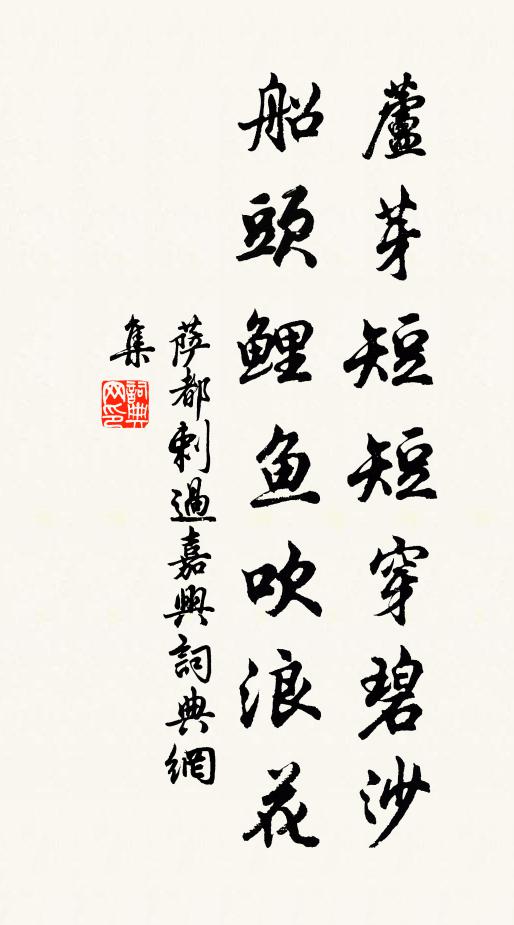 蘆芽短短穿碧沙
船頭鯉鱼吹浪花
萨都剌過嘉興詞典網
集
詞典
网印